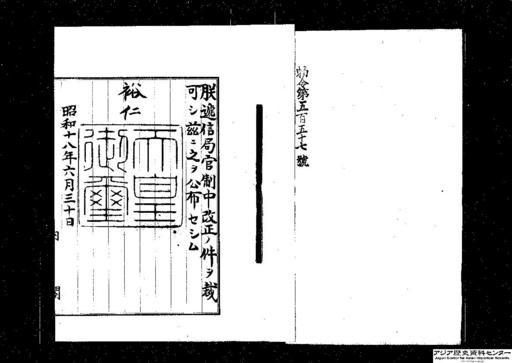 勅令第五百五十七號
朕遞信局官制中改正ノ件ヲ裁
可シ茲ニ之ヲ公布セシム
裕仁
天皇
御璽
昭和十八年六月三十日
内 閣
アジア歴史資料センター
Japan Center for Asian Historical Records